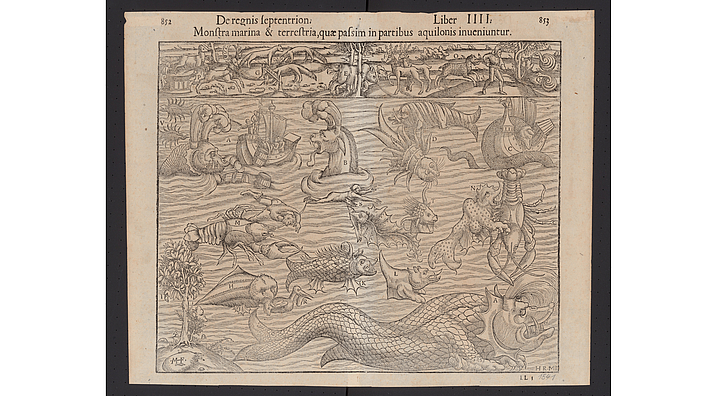 852 De regnis septentrion: Liber IIII: 853
Monstra marina & terrestria, quæ passim in partibus aquilonis inueniuntur.
B
D
N
M
K
L
H
A
HRMD